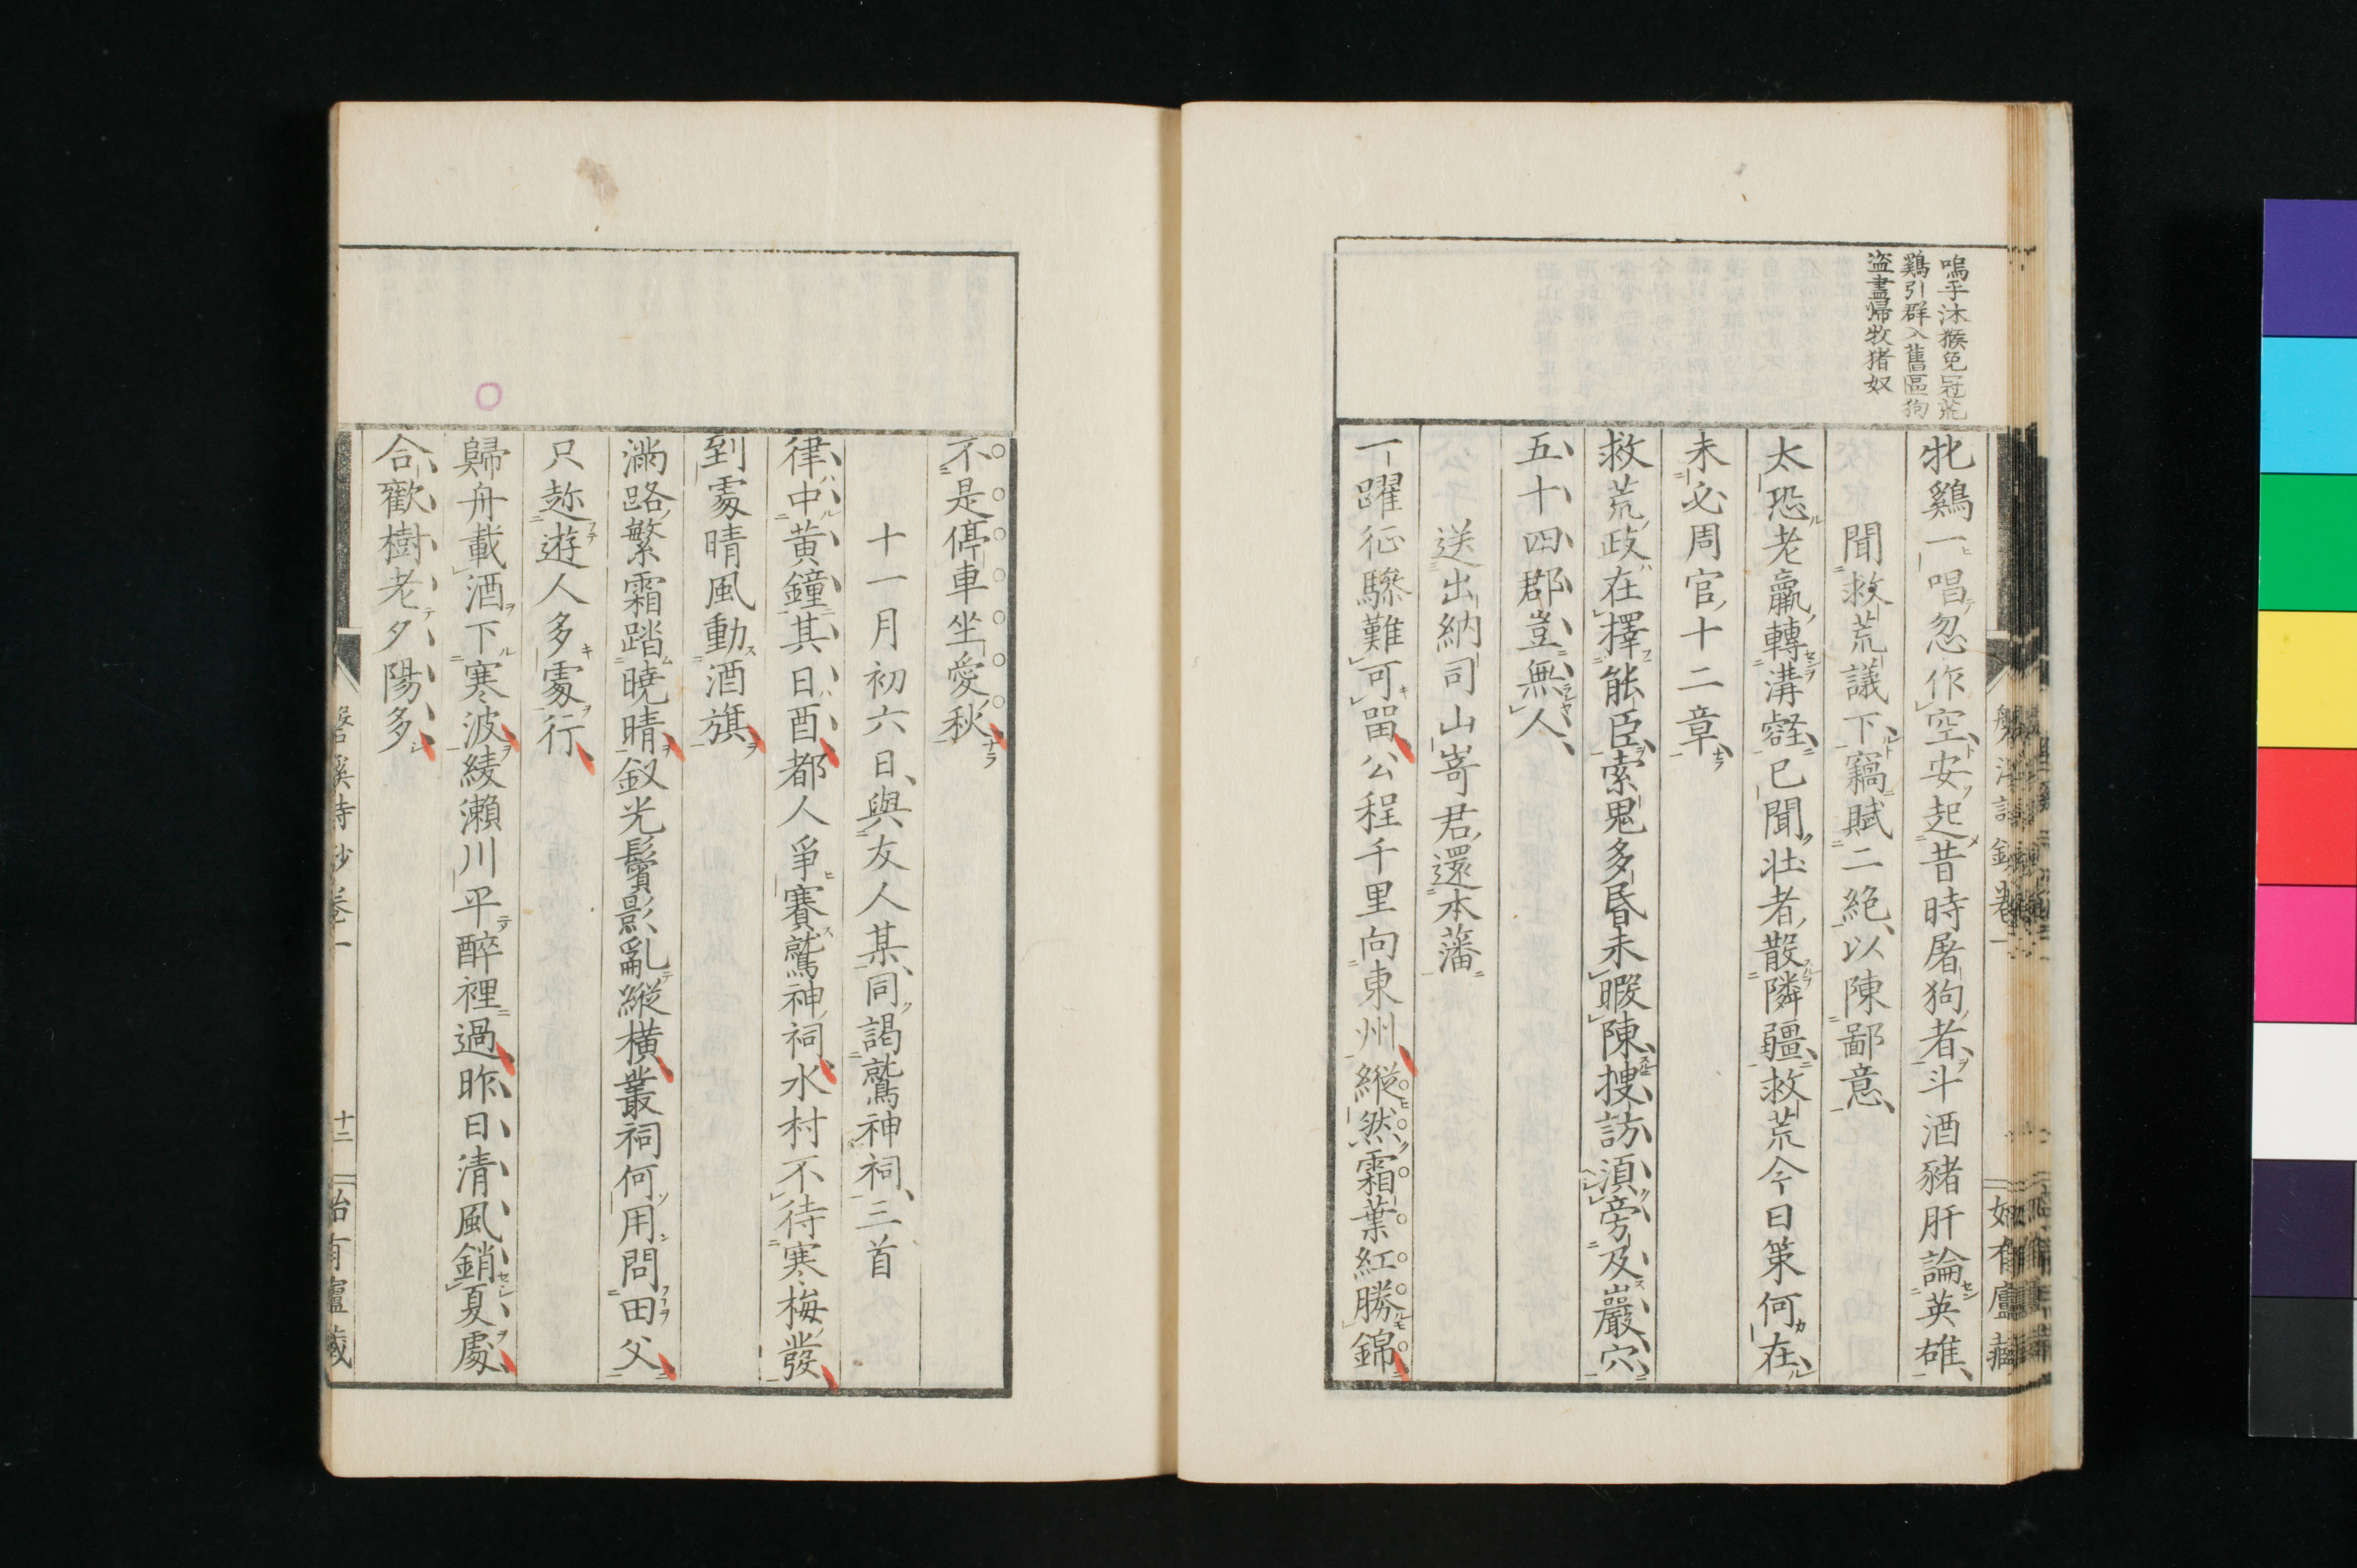 嗚乎沐猴免冠荒
鷄引群入舊區狗
盗盡帰牧猪奴
牝鷄一唱忽作空安起昔時屠狗者斗酒豬肝論英雄
聞救荒議下竊賦二絶以陳鄙意
太恐老羸轉溝壑已聞壯者散隣疆救荒今日策何在
未必周官十二章
救荒政在擇能臣索鬼多昏未暇陳捜訪須旁及巖穴
五十四郡豈無人
送出納司山嵜君還本藩
一躍征驂難可畱公程千里向東州縱然霜葉紅勝錦
不是停車坐愛秋
十一月初六日與友人某同謁鷲神祠三首
律中黄鐘其日酉都人爭賽鷲神祠水村不待寒梅發
到處晴風動酒旗
滿路繁霜踏曉晴釵光鬢影亂縱横叢祠何用問田父
只趂遊人多處行
歸舟載酒下寒波綾瀨川平醉裡過昨日清風銷夏處
合歡樹老夕陽多
磐溪詩鈔卷一
十二